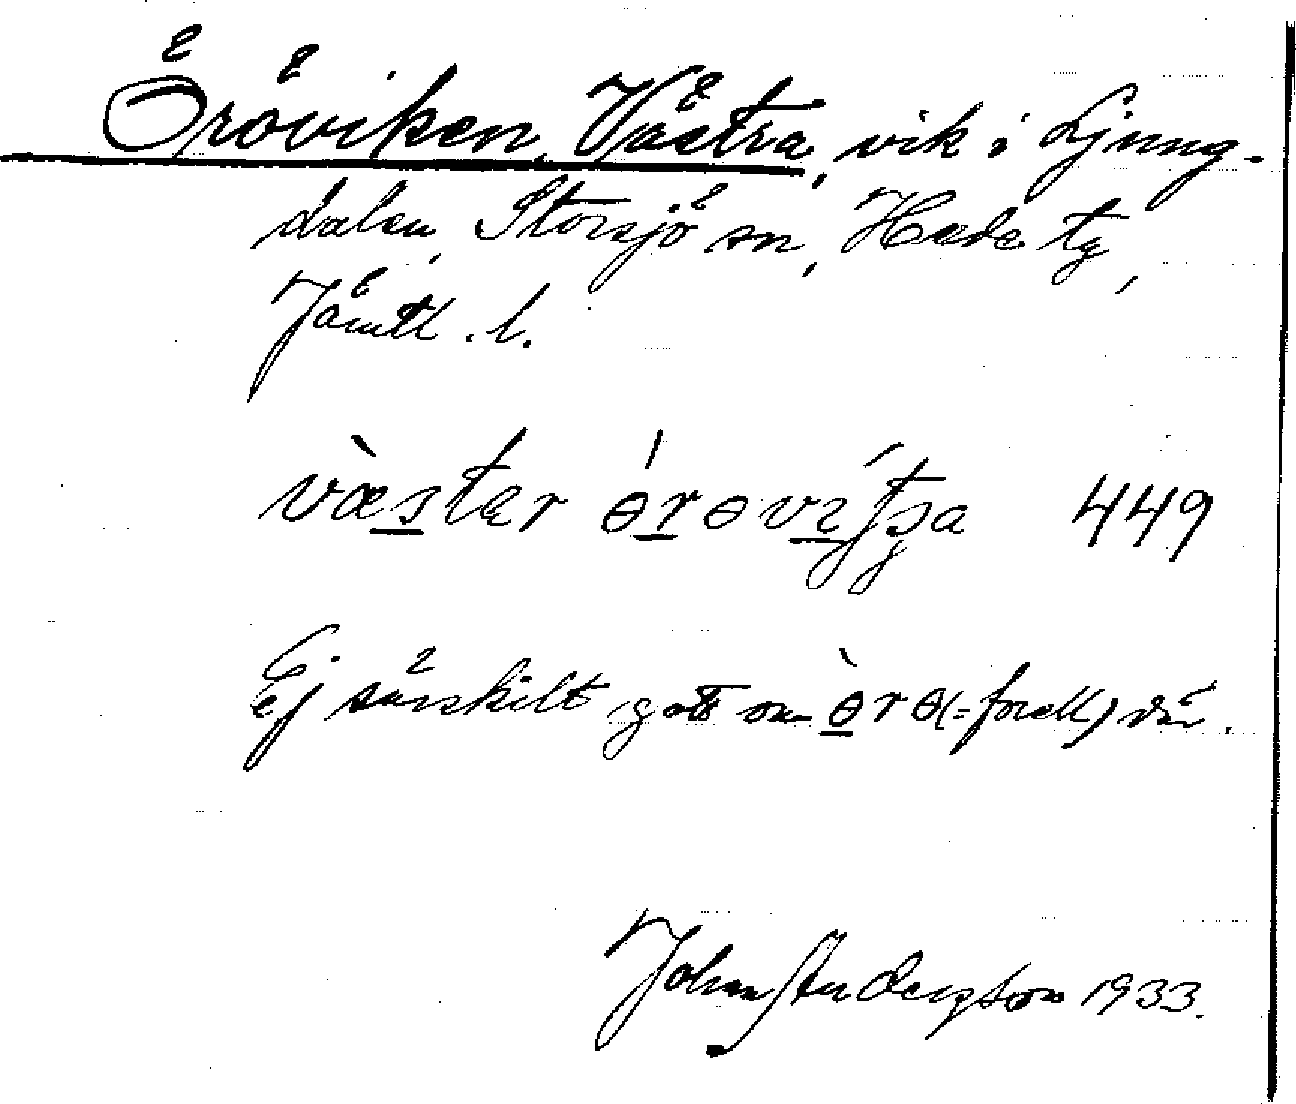 Öröviken, Västra, vik i Ljung-
dalen, Storsjö sn, Hede tg,
Jämtl. l.
væstær ɵrɵvɪʃʂa 449
Ej särskilt gott om ɵrɵ (= forell) där.
Johan Andersson 1933.